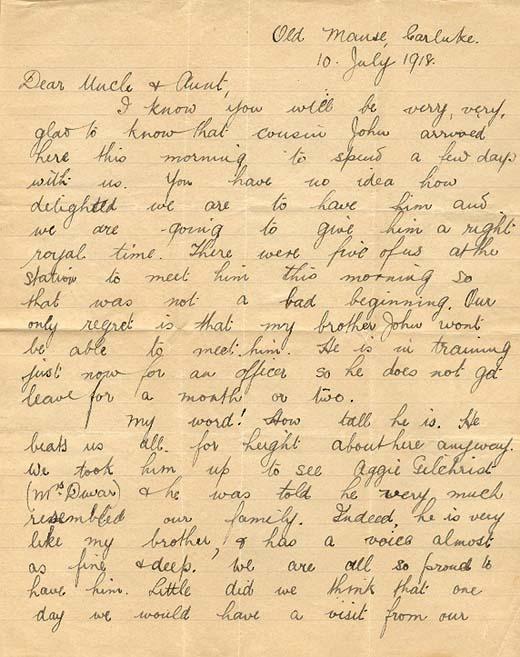 Old Manse, Carluke.
10. July 1918.
Dear Uncle & Aunt,
I know you will be very, very,
glad to know that cousin John arrived
here this morning to spend a few days
with us. You have no idea how
delighted we are to have him and
we are going to give him a right
royal time. There were five of us at the
station to meet him this morning so
that was not a bad beginning. Our
only regret is that my brother John wont
be able to meet him. He is in training
just now for an officer so he does not get
leave for a month or two.
My word! How tall he is. He
beats us all for height about here anyway.
We took him up to see Aggie Gilchrist
(Mrs Dewar) & he was told he very much
resembled our family. Indeed, he is very
like my brother, & has a voice almost
as fine & deep. We are all so proud to
have him. Little did we think that one
day we would have a visit from our